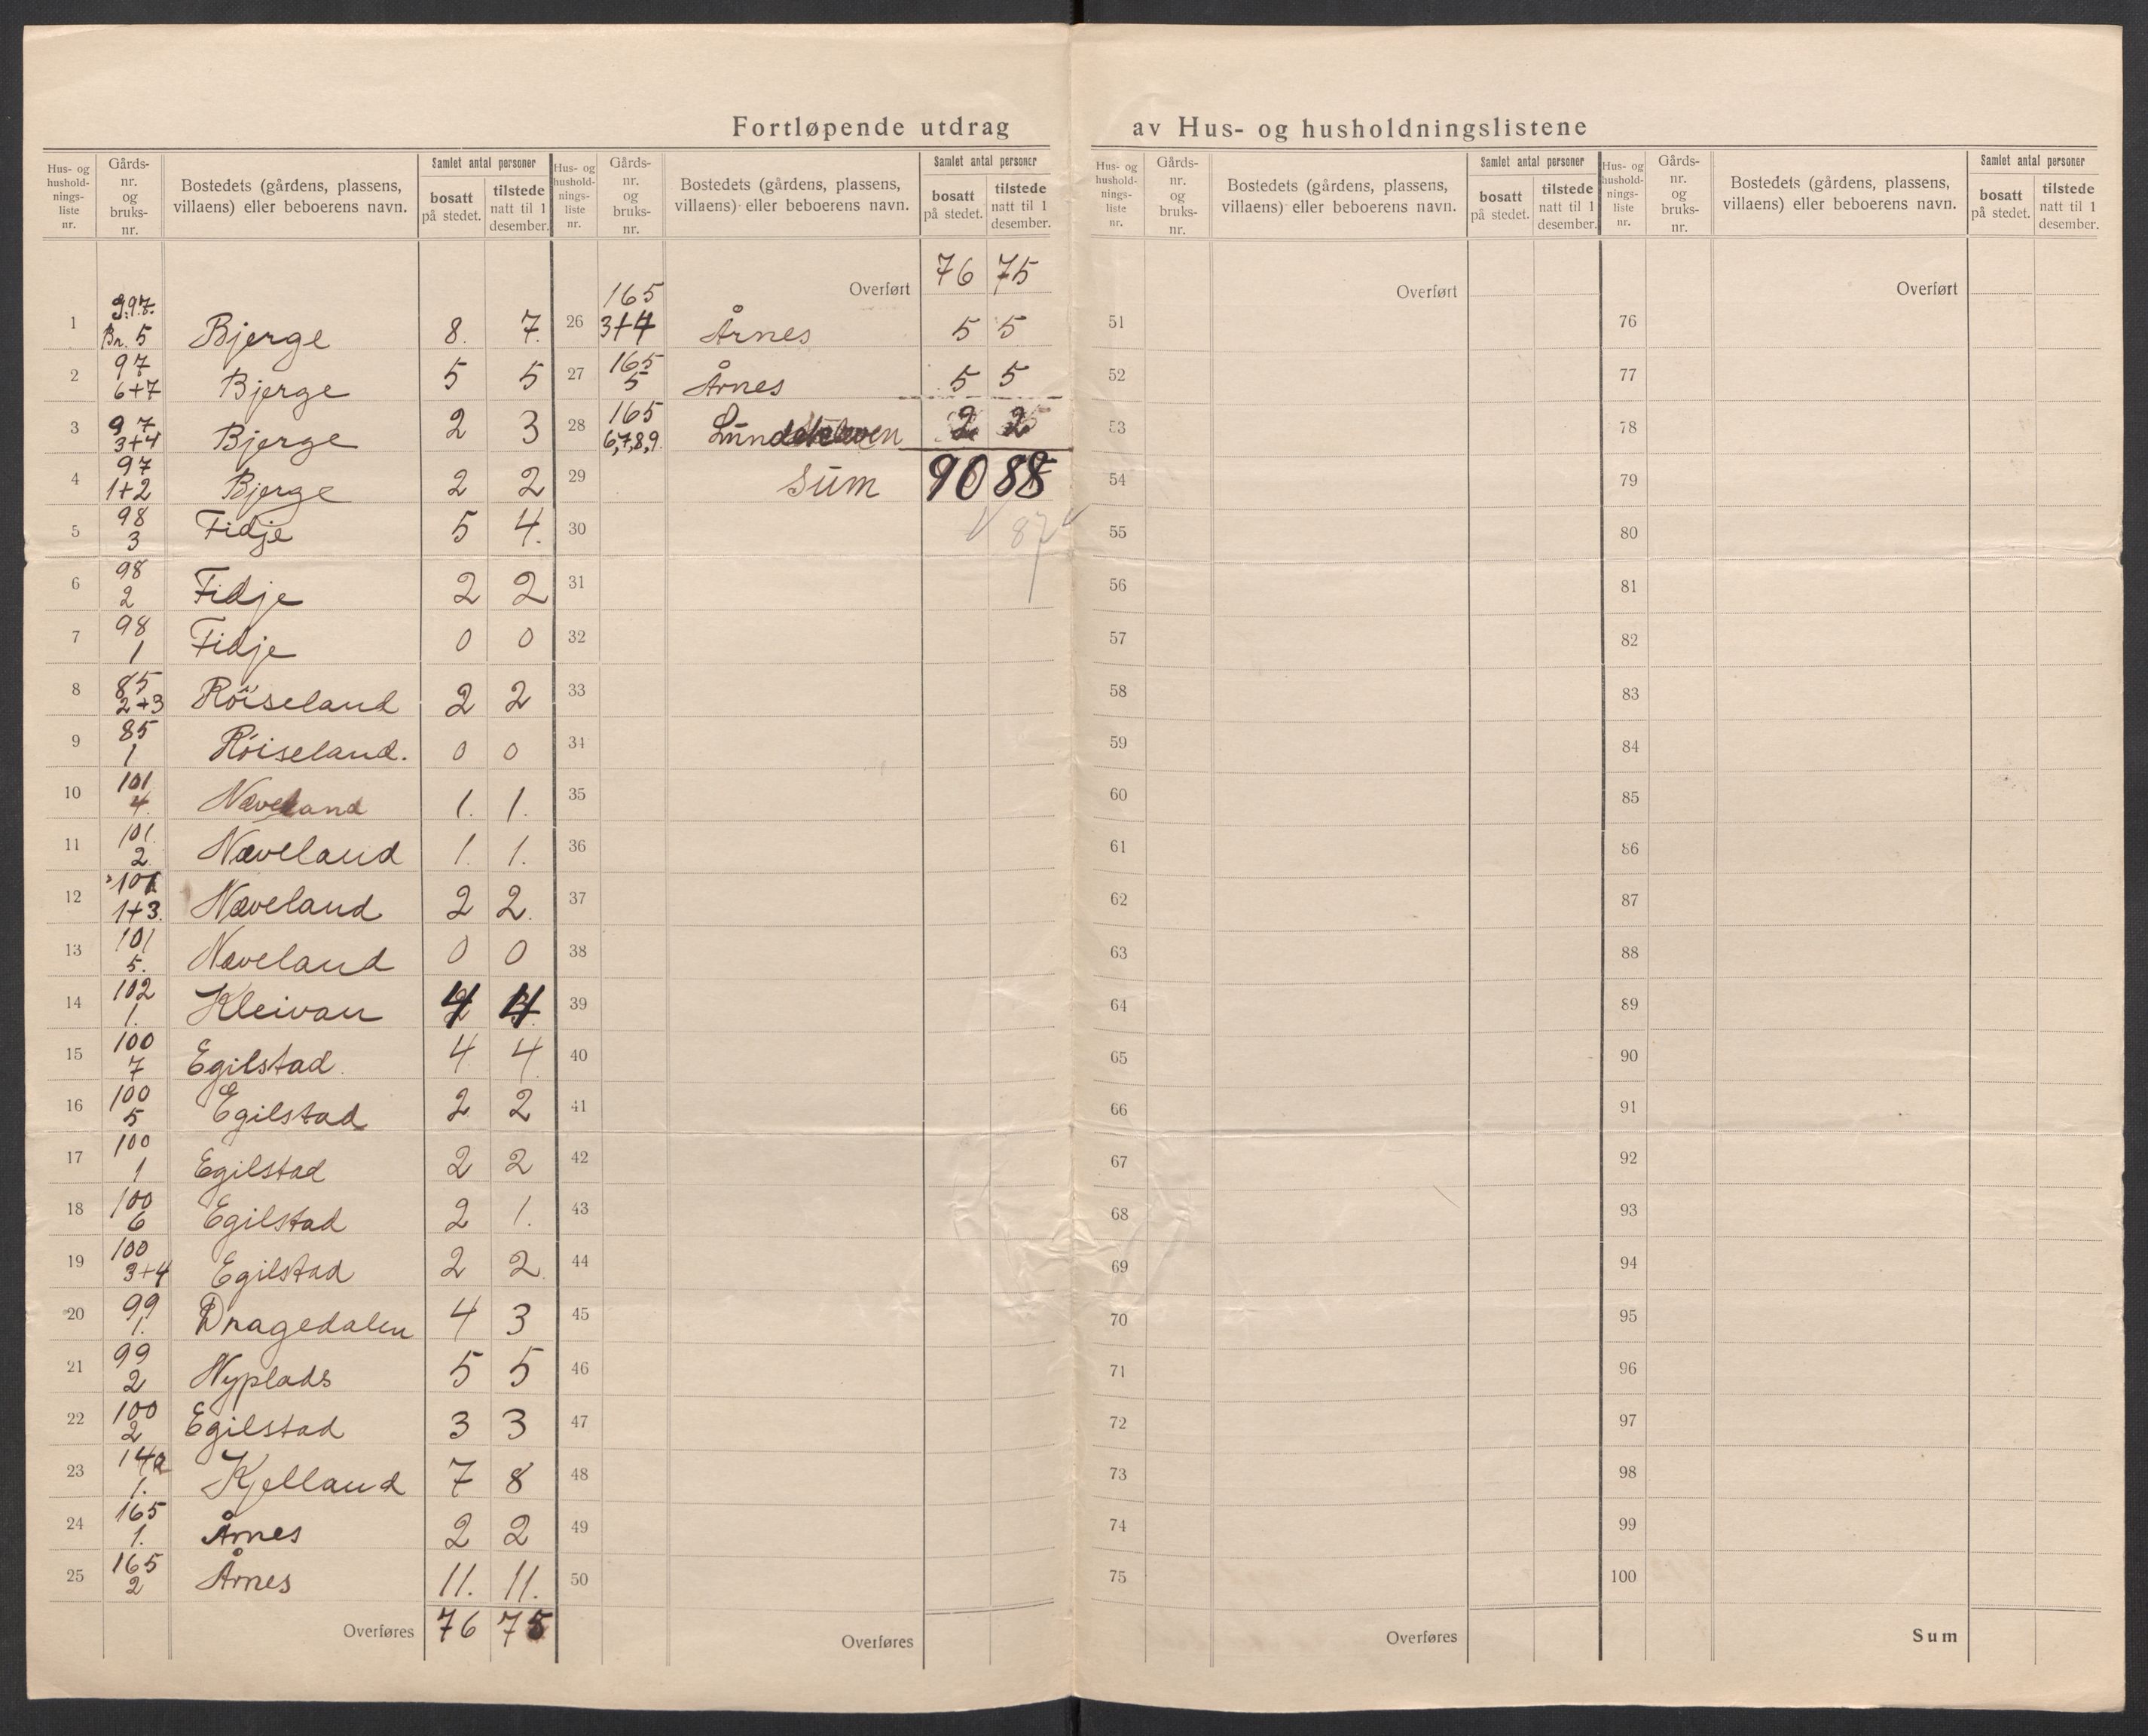 Fortløpende utdrag av Hus- og husholdningslistene
Hus- og hushold-nings-liste nr. Gårds-nr. og bruks-nr. Bostedets (gårdens, plassens, villaens) eller beboerens navn. Samlet antal personer bosatt på stedet. tilstede natt til 1 desember.
1 G. 97. Br. 5 Bjerge 8. 7.
2 97 6+7 Bjerge 5 5
3 97 3+4 Bjerge 2 3
4 97 1+2 Bjerge 2 2
5 98 3 Fidje 5 4.
6 98 2 Fidje 2 2
7 98 1 Fidje 0 0
8 85 2+3 Röiseland 2 2
9 85 1 Röiseland. 0 0
10 101 4. Næveland 1. 1.
11 101. 2. Næveland 1. 1.
12 101 1+3. Næveland 2 2.
13 101 5. Næveland 0 0
14 102 1. Kleivan 4 4
15 100 7 Egilstad. 4 4
16 100 5 Egilstad 2 2
17 100 1 Egilstad 2 2
18 100 6 Egilstad 2 1.
19 100 3+4 Egilstad 2 2.
20 99 1. Dragedalen 4 3
21 99 2 Nyplads 5 5
22 100 2 Egilstad 3 3
23 1. Kjelland 7 8
24 165 1. Årnes 2 2
25 165 2 Årnes 11. 11.
Overføres 76 75
Hus- og hushold-nings-liste nr. Gårds-nr. og bruks-nr. Bostedets (gårdens, plassens, villaens) eller beboerens navn. Samlet antal personer bosatt på stedet. tilstede natt til 1 desember.
Overført 76 75
26 165 3+4 Årnes 5 5
27 165 5 Årnes 5 5
28 165 6,7,8,9. 2 2
29 Sum 90 88
30 87
31
32
33
34
35
36
37
38
39
40
41
42
43
44
45
46
47
48
49
50
Overføres
Hus- og hushold-nings-liste nr. Gårds-nr. og bruks-nr. Bostedets (gårdens, plassens, villaens) eller beboerens navn. Samlet antal personer bosatt på stedet. tilstede natt til 1 desember.
Overført
51
52
53
54
55
56
57
58
59
60
61
62
63
64
65
66
67
68
69
70
71
72
73
74
75
Overføres
Hus- og hushold-nings-liste nr. Gårds-nr. og bruks-nr. Bostedets (gårdens, plassens, villaens) eller beboerens navn. Samlet antal personer bosatt på stedet. tilstede natt til 1 desember.
Overført
76
77
78
79
80
81
82
83
84
85
86
87
88
89
90
91
92
93
94
95
96
97
98
99
100
Sum